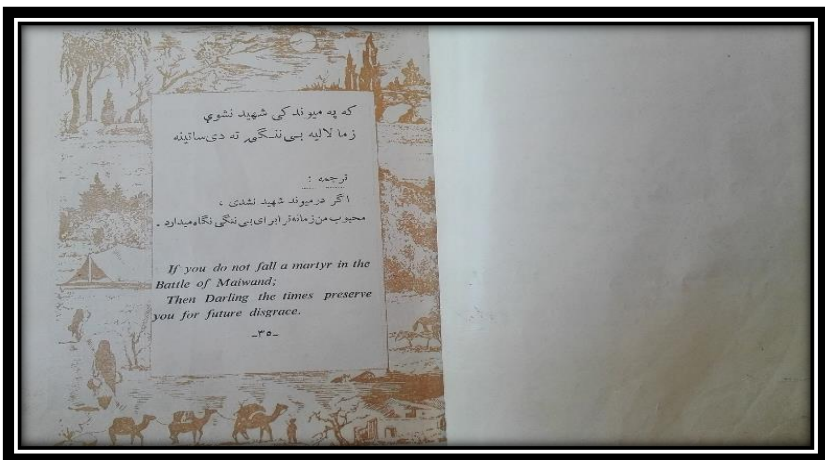 که په میوند کی شهید نشوې
زما لالیه بی ننگی ته دی ساتینه
ترجمه :
اگر درمیوند شهید نشدی ،
محبوب من زمانه ترا برای بی ننگی نگاه میدارد .
If you do not fall a martyr in the
Battle of Maiwand;
Then Darling the times preserve
you for future disgrace.
-۳۵-